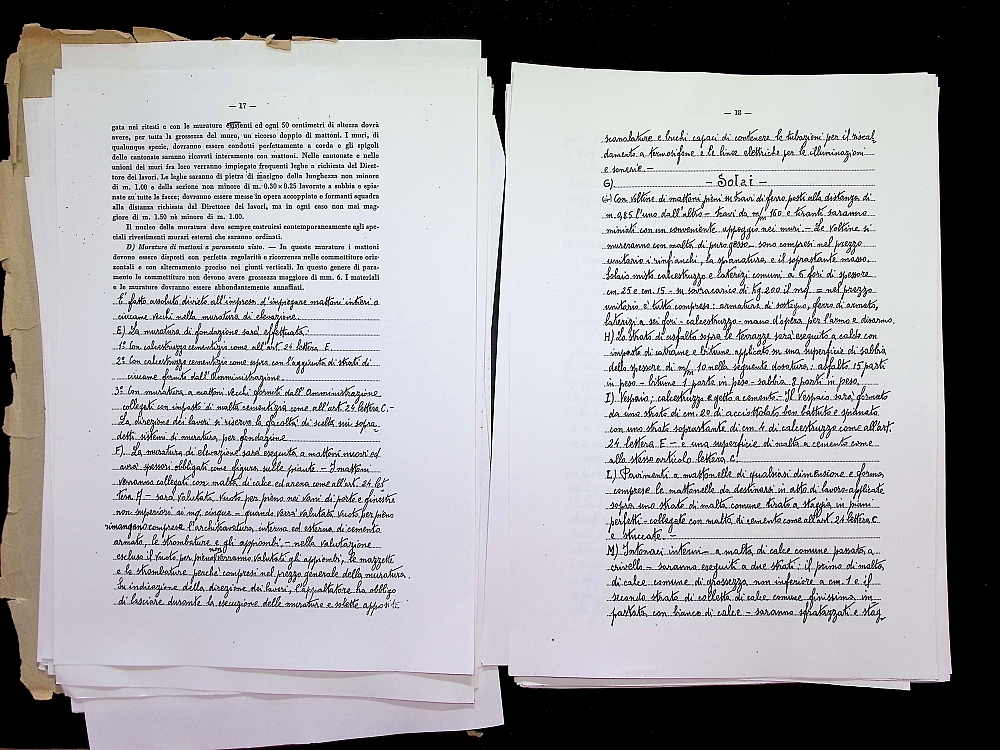 — 17 —
gata nei ritesti e con le murature esistenti ed ogni 50 centimetri di altezza dovrà
avere, per tutta la grossezza del muro, un ricorso doppio di mattoni. I muri, di
qualunque specie, dovranno essere condotti perfettamente a corda e gli spigoli
delle cantonate saranno ricavati interamente con mattoni. Nelle cantonate e nelle
unioni dei muri fra loro verranno impiegate frequenti leghe a richiesta del Diret-
tore dei lavori. Le leghe saranno di pietra di macigno della lunghezza non minore
di m. 1.00 e della sezione non minore di m. 0.30 × 0.25 lavorate a subbia e spia-
nate su tutte le facce; dovranno essere messe in opera accoppiate e formanti squadra
alla distanza richiesta dal Direttore dei lavori, ma in ogni caso non mai mag-
giore di m. 1.50 nè minore di m. 1.00.
Il nucleo della muratura deve sempre costruirsi contemporaneamente agli spe-
ciali rivestimenti murari esterni che saranno ordinati.
D) Murature di mattoni a paramento visto. — In queste murature i mattoni
devono essere disposti con perfetta regolarità e ricorrenza nelle commettiture oriz-
zontali e con alternamento preciso nei giunti verticali. In questo genere di para-
mento le commettiture non devono avere grossezza maggiore di mm. 6. I materiali
e le murature dovranno essere abbondantemente annaffiati.
E' fatto assoluto divieto all'impresa d'impiegare mattoni interi o
cimame vecchi nella muratura di elevazione.
E) La muratura di fondazione sarà effettuata:
1° Con calcestruzzo cementizio come all'art. 24 lettera E.
2° Con calcestruzzo cementizio come sopra con l'aggiunta di strati di
cimame forniti dall'Amministrazione.
3° Con muratura a mattoni vecchi forniti dall'Amministrazione
collegati con impasto di malta cementizia come all'art. 24 lettera C. -
La direzione dei lavori si riserva la facoltà di scelta sui sopra-
detti sistemi di muratura, per fondazione
F) La muratura di elevazione sarà eseguita a mattoni nuovi ed
avrà spessori obbligati come figura sulle piante - I mattoni
verranno collegati con malta di calce ed arena come all'art. 24 let
tera A - sarà valutata vuoto per pieno nei vani di porte e finestre
non superiori ai mq. cinque - quando verrà valutata vuoto per pieno
rimangono comprese l'architravatura, interna ed esterna di cemento
armato, le strombature e gli appiombi, - nella valutazione
esclusa il vuoto per pieno non verranno valutati gli appiombi, le mazzette
e le strombature perchè compresi nel prezzo generale della muratura.
Su indicazione della direzione dei lavori, l'appaltatore ha obbligo
di lasciare durante la esecuzione delle murature e solette apposite
— 18 —
scanalature e buchi capaci di contenere le tubazioni per il riscal
damento a termosifone e le linee elettriche per le illuminazioni
e sonerie. -
G) - Solai -
Con voltine di mattoni pieni su travi di ferro posti alla distanza di
m. 0,85 l'uno dall'altro - travi da m/m 160 e tiranti saranno
muniti con un conveniente appoggio nei muri. - Le voltine si
mureranno con malta di puro gesso - sono compresi nel prezzo
unitario i rinfianchi, la spianatura e il soprastante masso.
Solaio misto calcestruzzo e laterizi comuni a 6 fori di spessore
cm. 25 e cm. 15 - su sovracarico di Kg. 200 il mq. = nel prezzo
unitario è tutto compreso: armature di sostegno, ferro di armata,
laterizi a sei fori - calcestruzzo - mano d'opera per l'armo e disarmo.
H) Lo strato di asfalto sopra le terrazze sarà eseguito a caldo con
impasto di catrame e bitume applicato su una superficie di sabbia
dello spessore di m/m 10 nella seguente dosatura: asfalto 15 parti
in peso - bitume 1 parte in peso - sabbia 8 parti in peso.
I) Vespaio; calcestruzzo e getto a cemento - Il vespaio sarà formato
da uno strato di cm. 20 di acciottolato ben battuto e spianato
con uno strato soprastante di cm. 4 di calcestruzzo come all'art.
24 lettera E - e una superficie di malta a cemento come
allo stesso articolo lettera C.
L) Pavimenti a mattonelle di qualsiasi dimensione e forma
comprese le mattonelle da destinarsi in atto di lavoro - applicate
sopra uno strato di malta comune tirato a staggia in piani
perfetti - collegate con malta di cemento come all'art. 24 lettera C
e stuccate. -
M) Intonaci interni - a malta di calce comune passata a
crivello - saranno eseguiti a due strati: il primo di malta
di calce comune di grossezza non inferiore a cm. 1 e il
secondo strato di colletta di calce comune finissima im
pastata con bianco di calce - saranno sfratazzati e stag